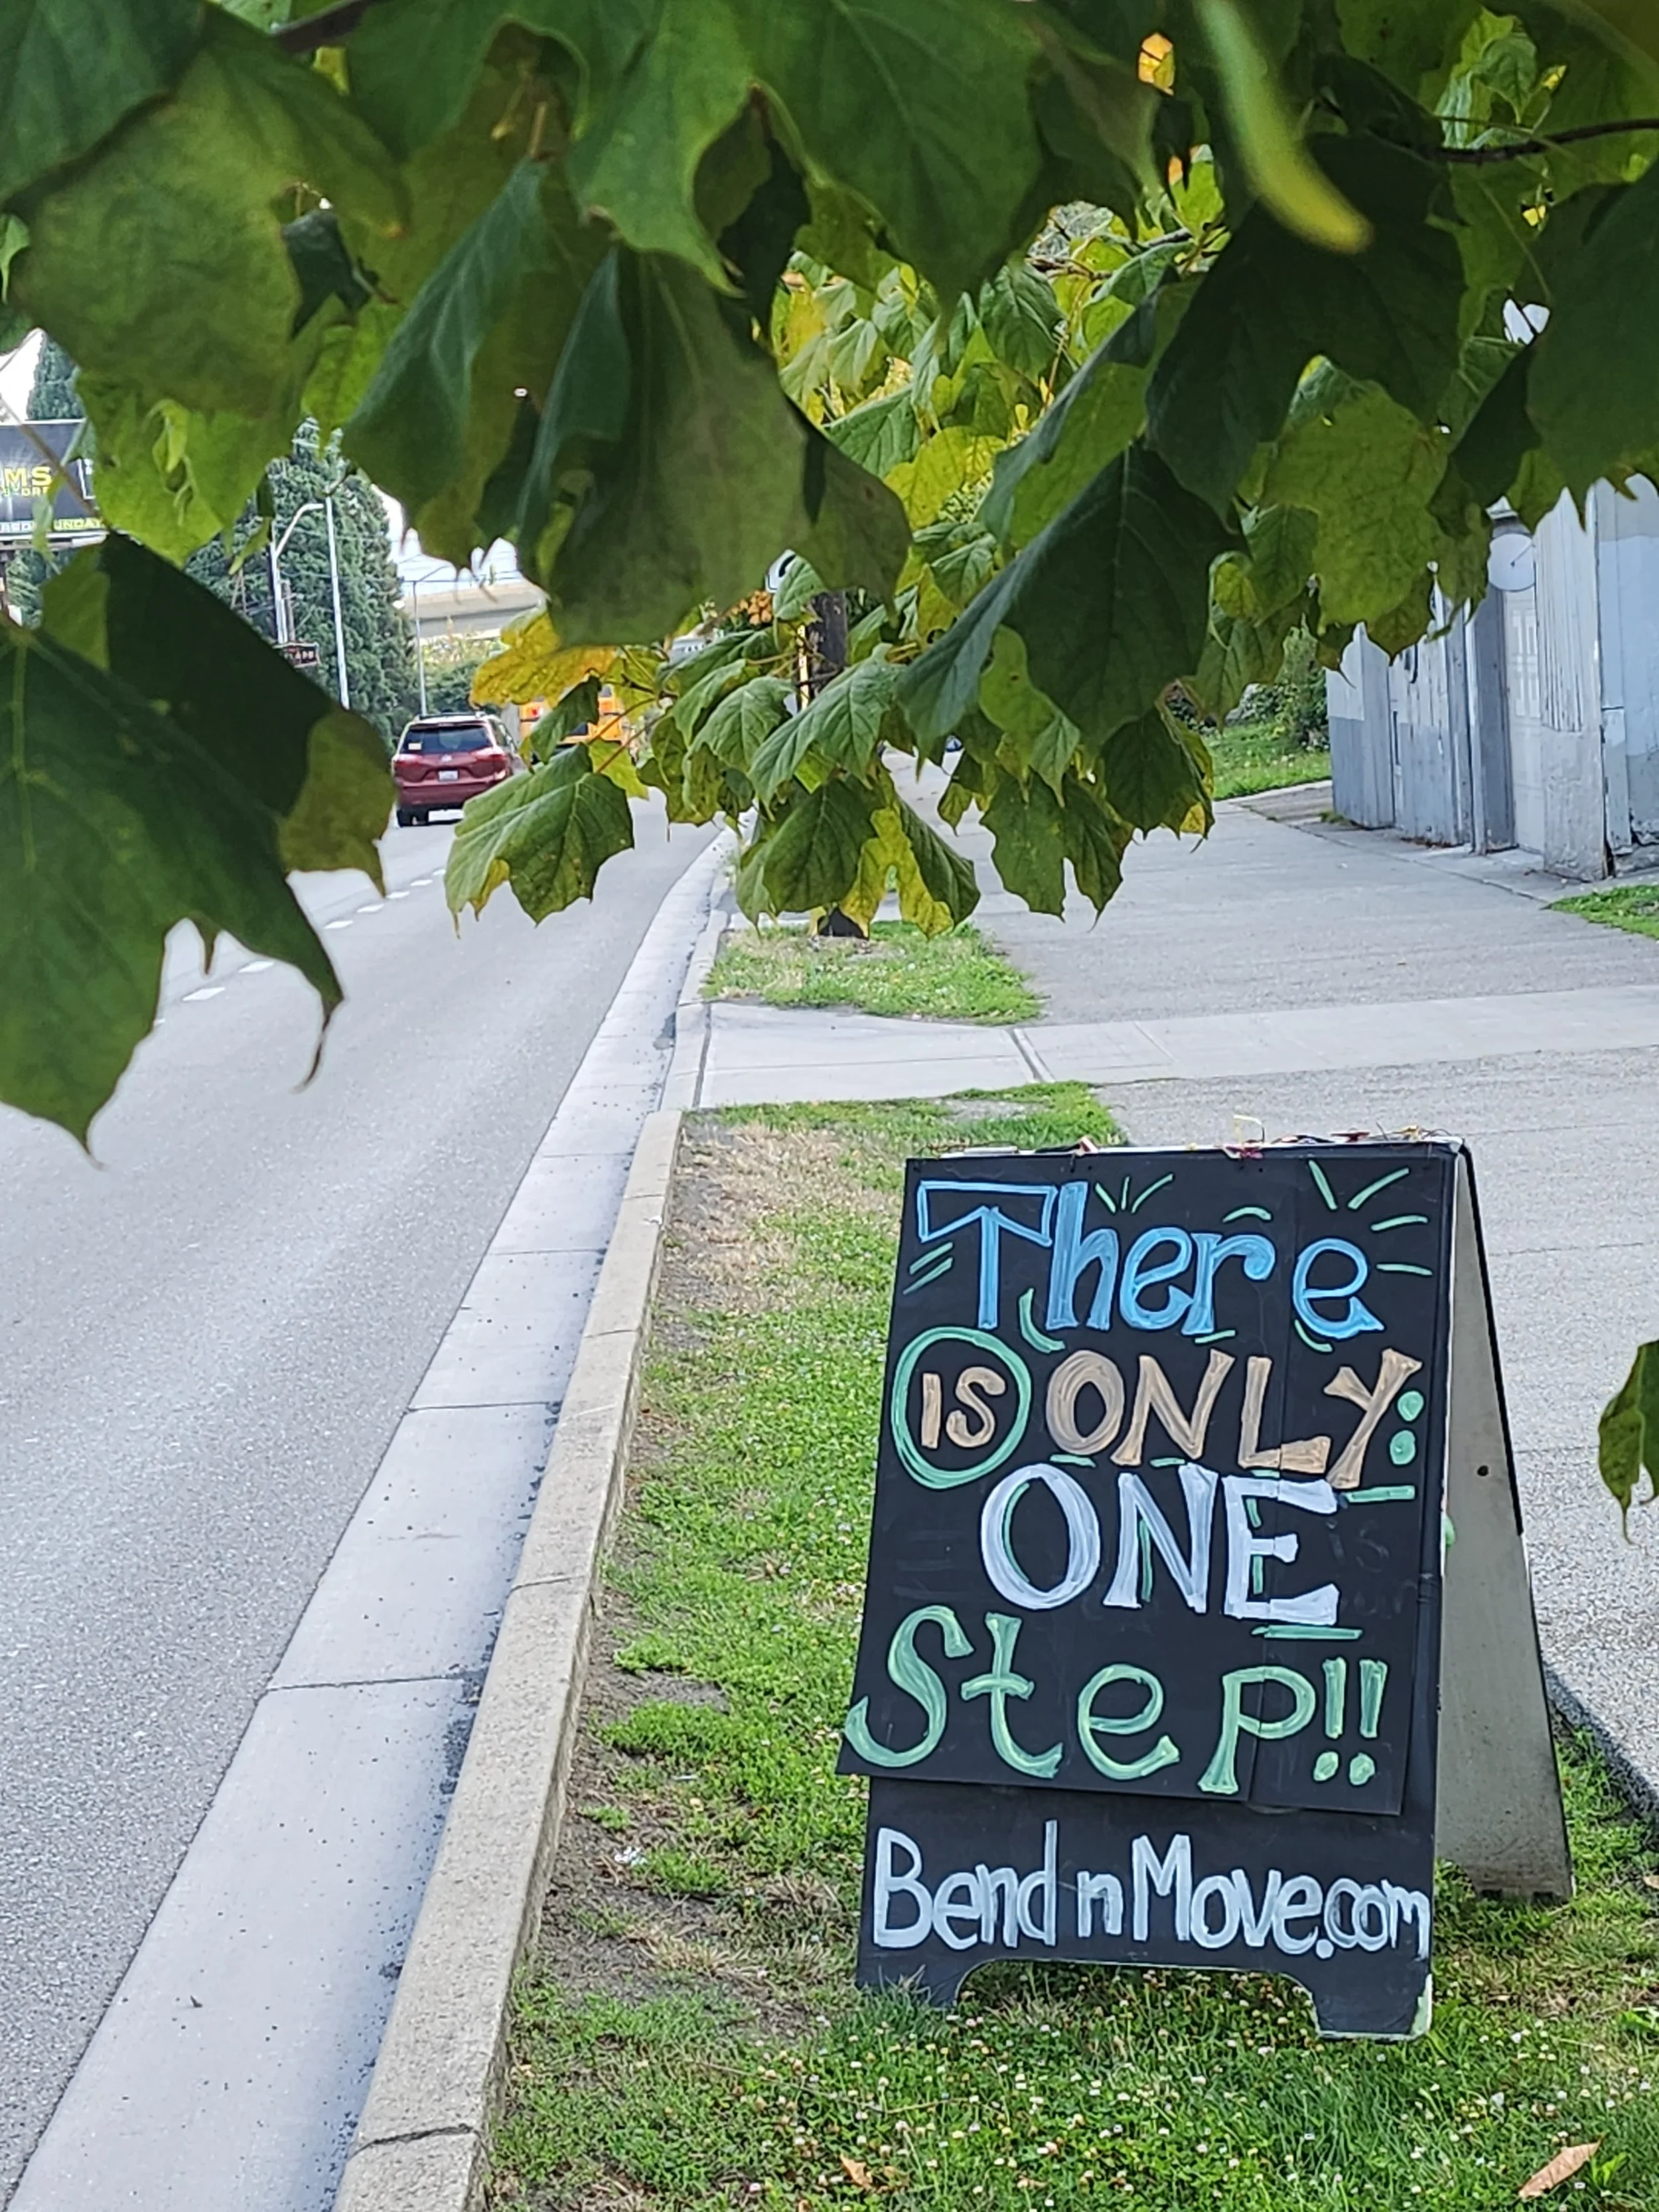 MS
There
IS ONLY:
ONE
Step!!
BendnMove.com